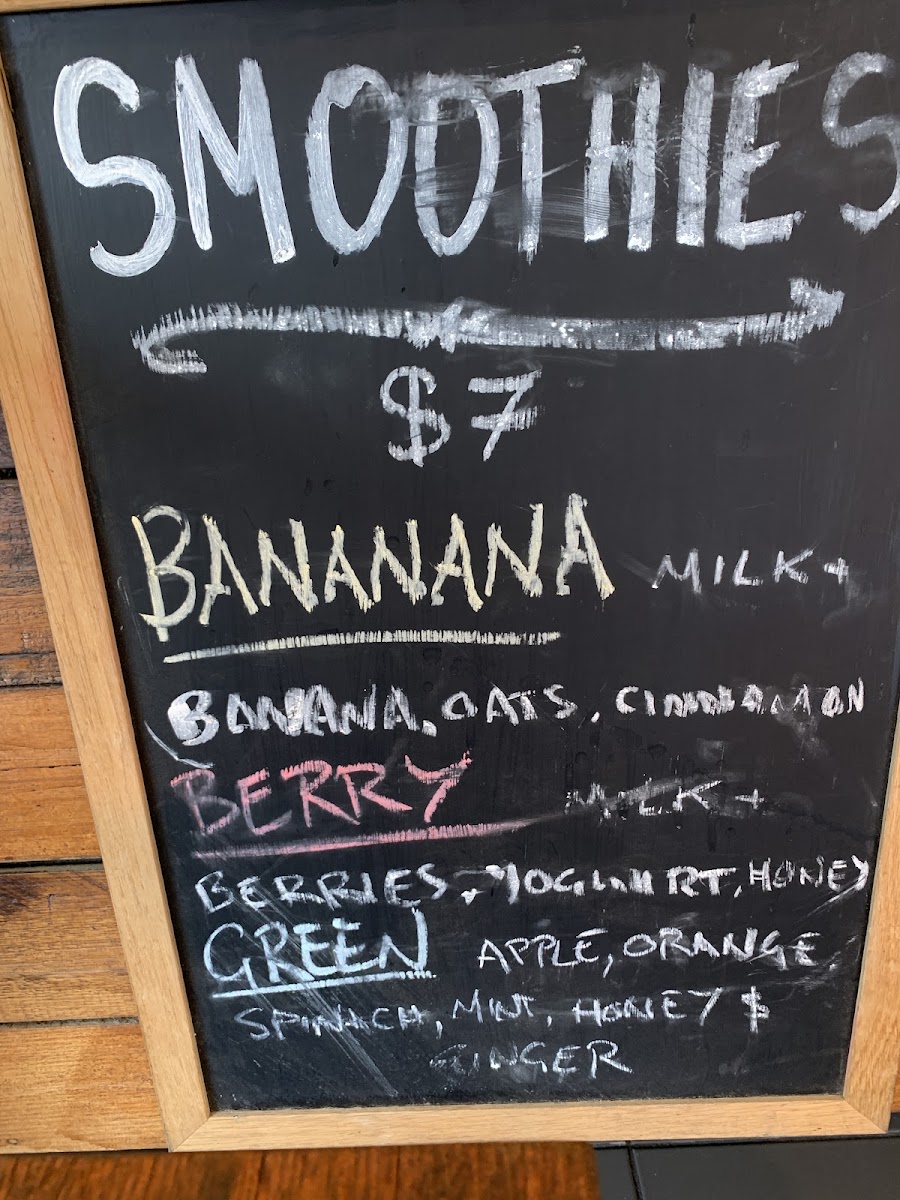 SMOOTHIES
$7
BANANANA MILK +
BANANA, OATS, CINNAMON
BERRY MILK +
BERRIES, YOGHURT, HONEY
GREEN APPLE, ORANGE
SPINACH, MINT, HONEY $
GINGER